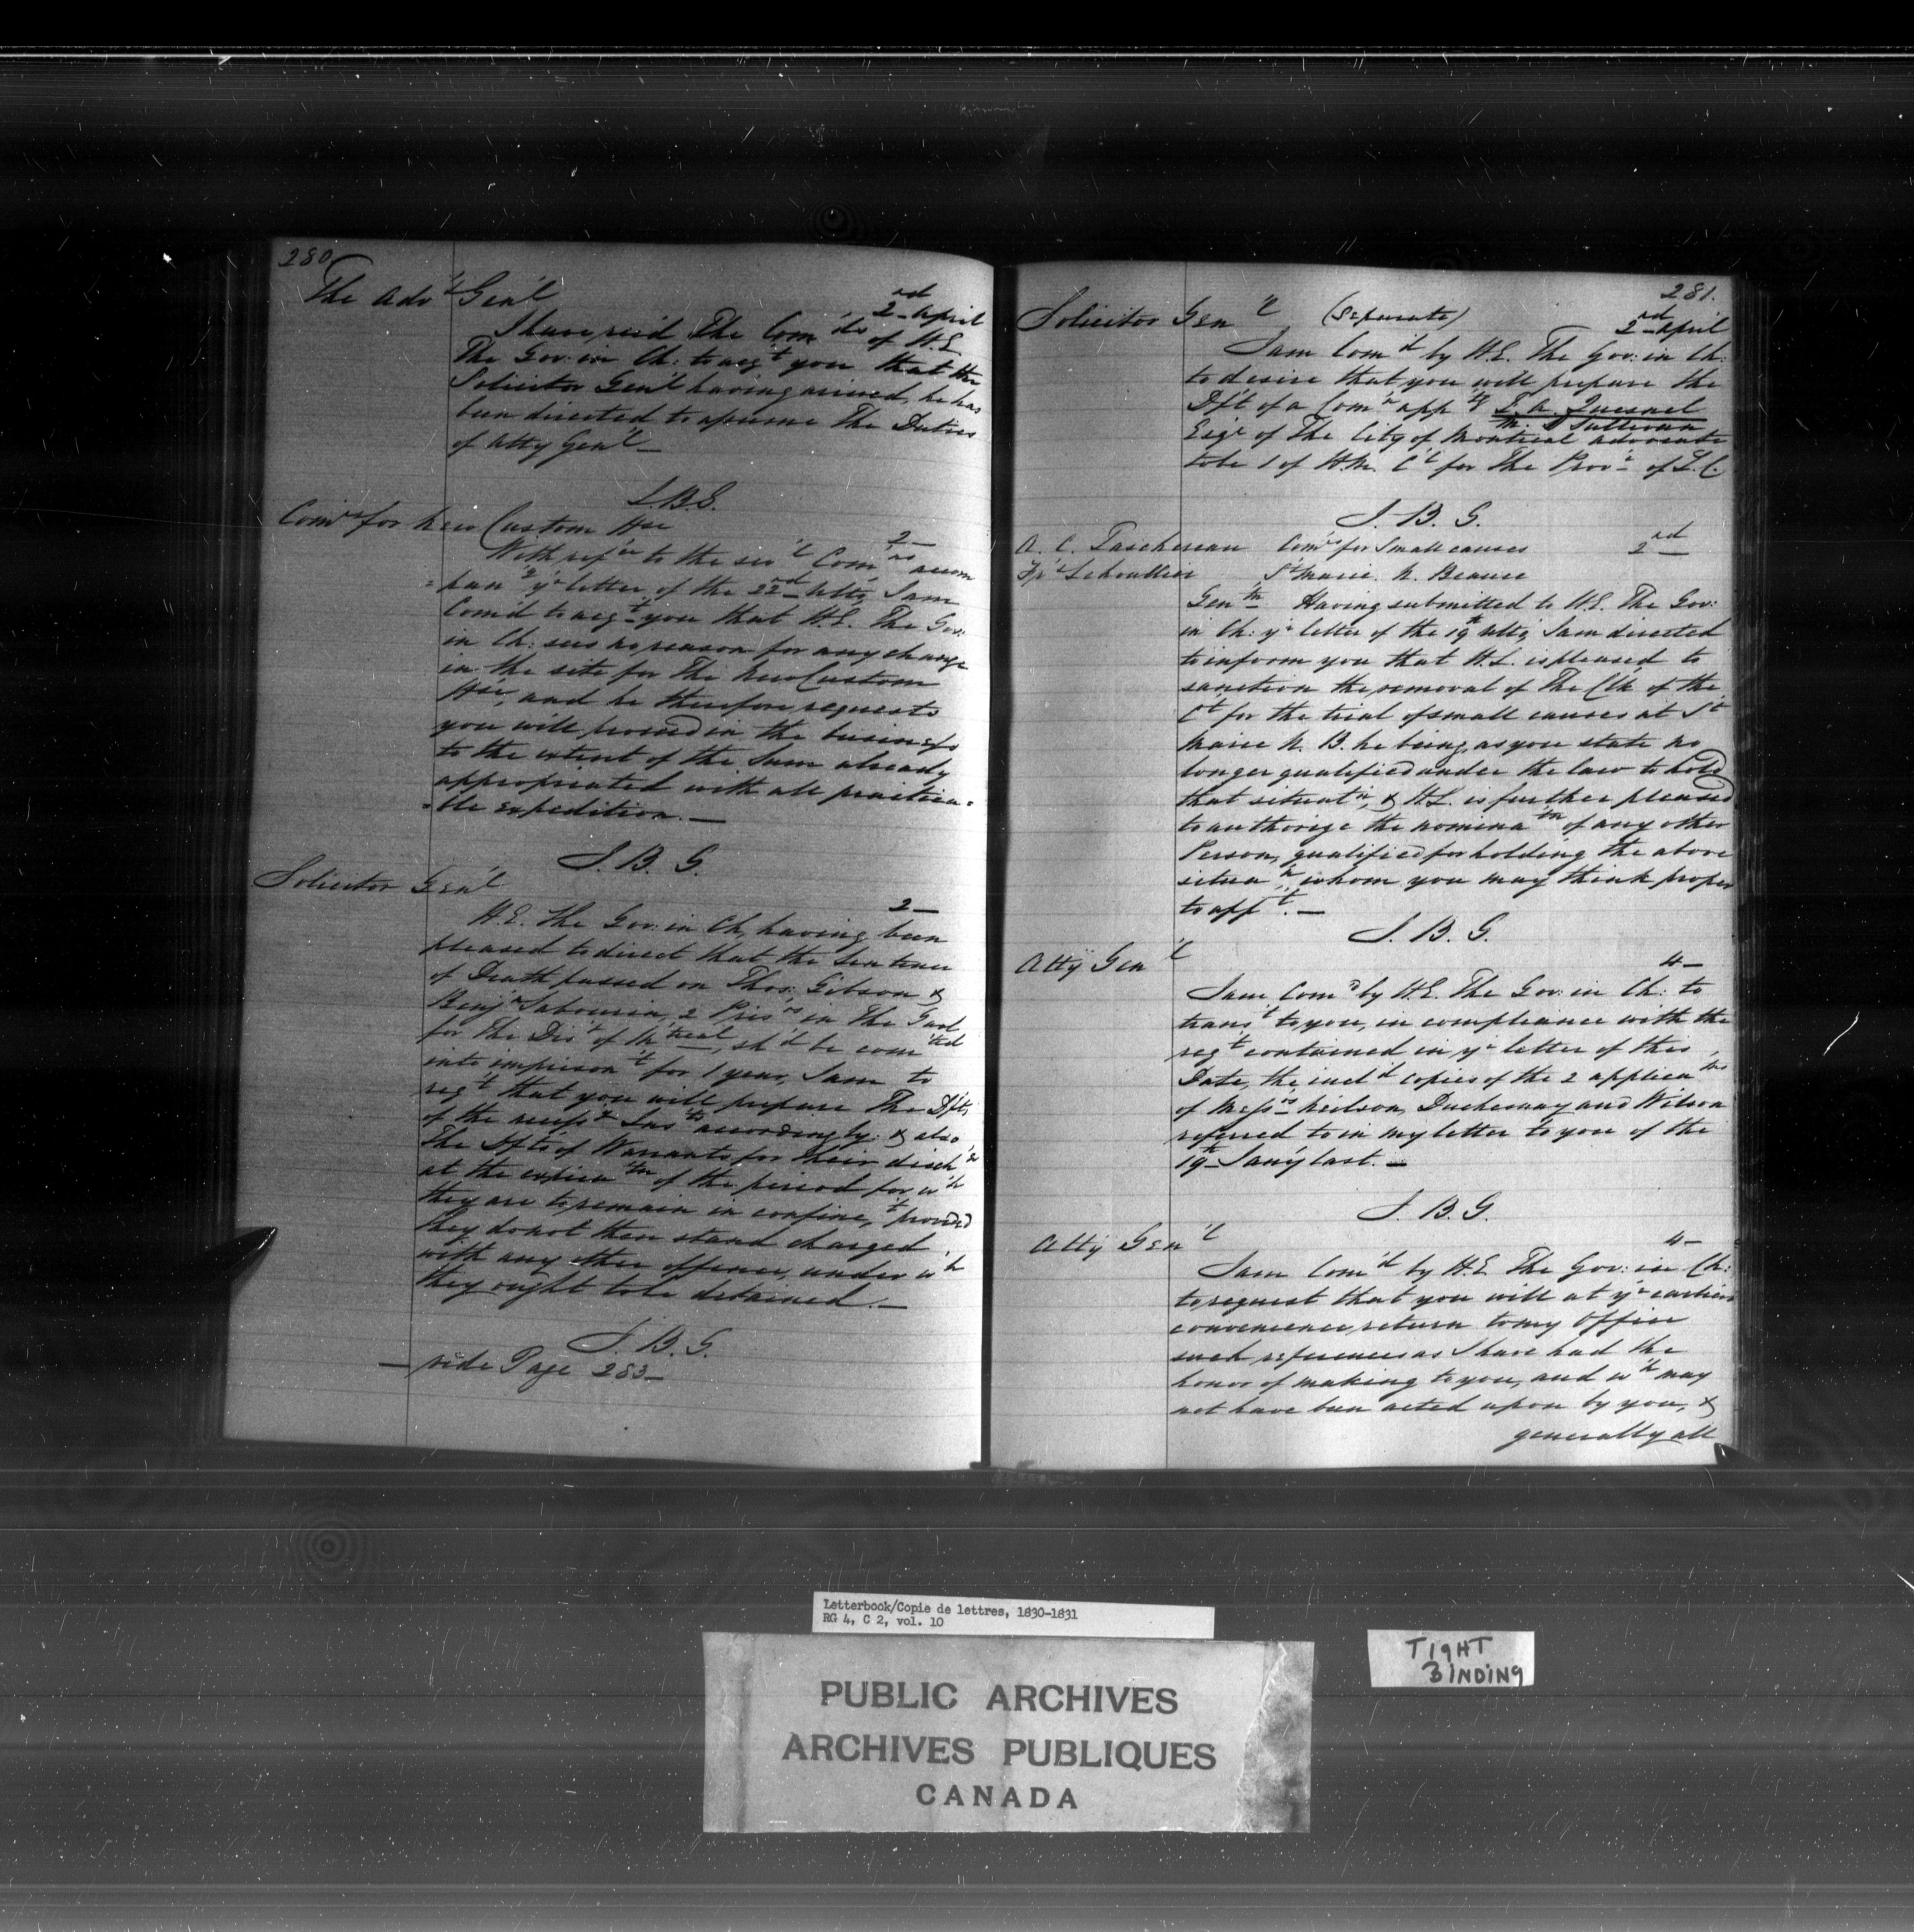 280.
The Adv't Gen'l
2nd April
I have rec'd The Com'ds of H.E.
The Gov: in Ch: to acq't you that the
Solicitor Gen'l having arrived, he has
been directed to assume The Duties
of Atty Gen'l —
J.B.G.
Com'rs for New Custom Hse
2 —
With ref'ce to the sev'l Com'ns accom
=pan'g y'r letter of the 22nd Ulto, I am
Com'd to acq't you that H.E. The Gov:
in Ch: sees no reason for any change
in the site for The New Custom
Hse, and he therefore requests
you will proceed in the business
to the extent of the Sum already
appropriated with all practica=
=ble expedition. —
J. B. G.
Solicitor Gen'l
2 —
H.E. The Gov: in Ch, having been
pleased to direct that the Sentence
of Death passed on Thos. Gibson &
Benj'n Sabourin, 2 Pris'rs in The Gaol
for The Dis't of M'treal, sh'd be com'ted
into imprison't for 1 year, I am to
req't that you will prepare The Dfts
of the necess'y Ins'ts accordingly: & also
The Dfts of Warrants for their disch'e
at the expira'tn of the period for w'h
they are to remain in confine't, provided
they do not then stand charged
with any other offence, under w'h
they ought to be detained. —
J. B. G.
— vide Page 283 —
281.
Solicitor Gen'l (Separate)
2nd April
I am Com'd by H.E. The Gov: in Ch:
to desire that you will prepare the
Df't of a Com'n app'g F. A. Quesnel
M. O'Sullivan
Esqr of The City of Montreal Advocate
to be 1 of H.M. C'l for The Prov'e of L.C.
J. B. G.
A. C. Taschereau Com'rs for Small causes 2nd
St Marie. N. Beauce
Gen'tn Having submitted to H.E. The Gov:
in Ch: y'r letter of the 19th Ulto, I am directed
to inform you that H.E. is pleased to
sanction the removal of The Clk of the
C't for the trial of small causes at St
Marie N. B. he being, as you state no
longer qualified under the law to hold
that situat'n, & H.E. is further pleased
to authorize the nomina'tn of any other
Person, qualified for holding the above
situa'n, whom you may think proper
to app't. —
J. B. G.
Atty Gen'l
4 —
I am Com'd by H.E. The Gov: in Ch: to
trans't to you, in compliance with the
req't contained in y'r letter of this
Date, the incl'd copies of the 2 applica'tns
of Mess'rs Neilson, Duchesnay and Wilson
referred to in my letter to you of the
19th Jan'y last. —
J. B. G.
Atty Gen'l
4 —
I am Com'd by H.E. The Gov: in Ch:
to request that you will at y'r earliest
convenience, return to my Office
such references as I have had the
honor of making to you, and w'h may
not have been acted upon by you, &
generally all
Letterbook/Copie de lettres, 1830-1831
RG 4, C 2, vol. 10
PUBLIC ARCHIVES
ARCHIVES PUBLIQUES
CANADA
TIGHT
BINDING